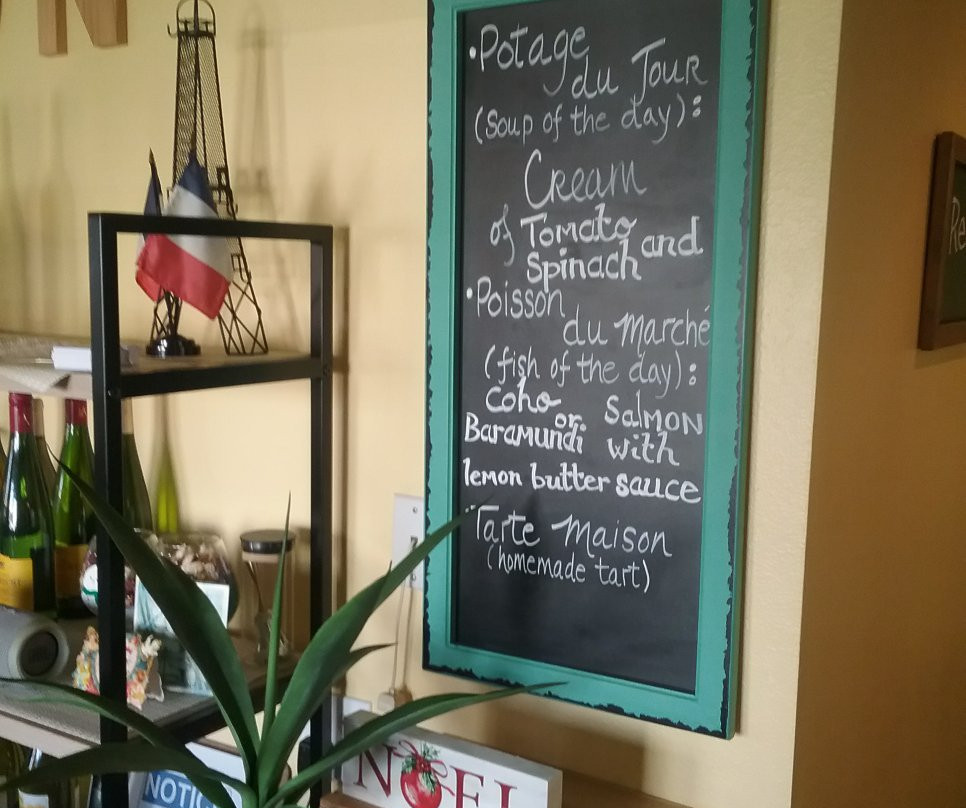 • Potage
du Jour
(Soup of the day):
Cream
of Tomato and
Spinach
• Poisson
du Marché
(fish of the day):
Coho or Salmon
Baramundi with
lemon butter sauce
Tarte Maison
(homemade tart)
Re
NOEL
NOTIC